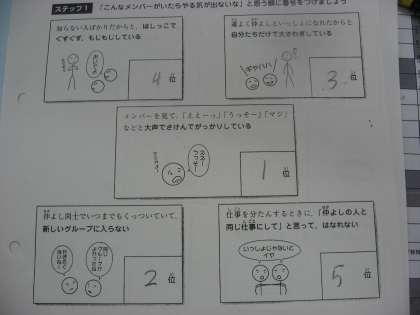 ステップ1 「こんなメンバーがいたらやる気が出ないな」と思う順に番号をつけましょう
知らない人ばかりだからと、はしっこで
ぐずぐず、もじもじしている
4 位
運よく仲よしといっしょになれたからと
自分たちだけで大さわぎしている
ギャハハ
3 位
メンバーを見て、「ええーっ」「うっそー」「マジ」
などと大声でさけんでがっかりしている
ええー
うっそー
1 位
仲よし同士でいつまでもくっついていて、
新しいグループに入らない
2 位
仕事を分たんするときに、「仲よしの人と
同じ仕事にして」と思って、はなれない
いっしょじゃないと
イヤ
5 位